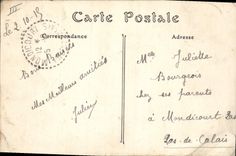 III
Le 2.10.15
Carte Postale
Correspondance
Adresse
Bons Baisers
Mes Meilleurs amitiées
Julien
Melle Juliette
Bourgeois
chez ses parents
à Mondicourt Pas
Pas-de-Calais